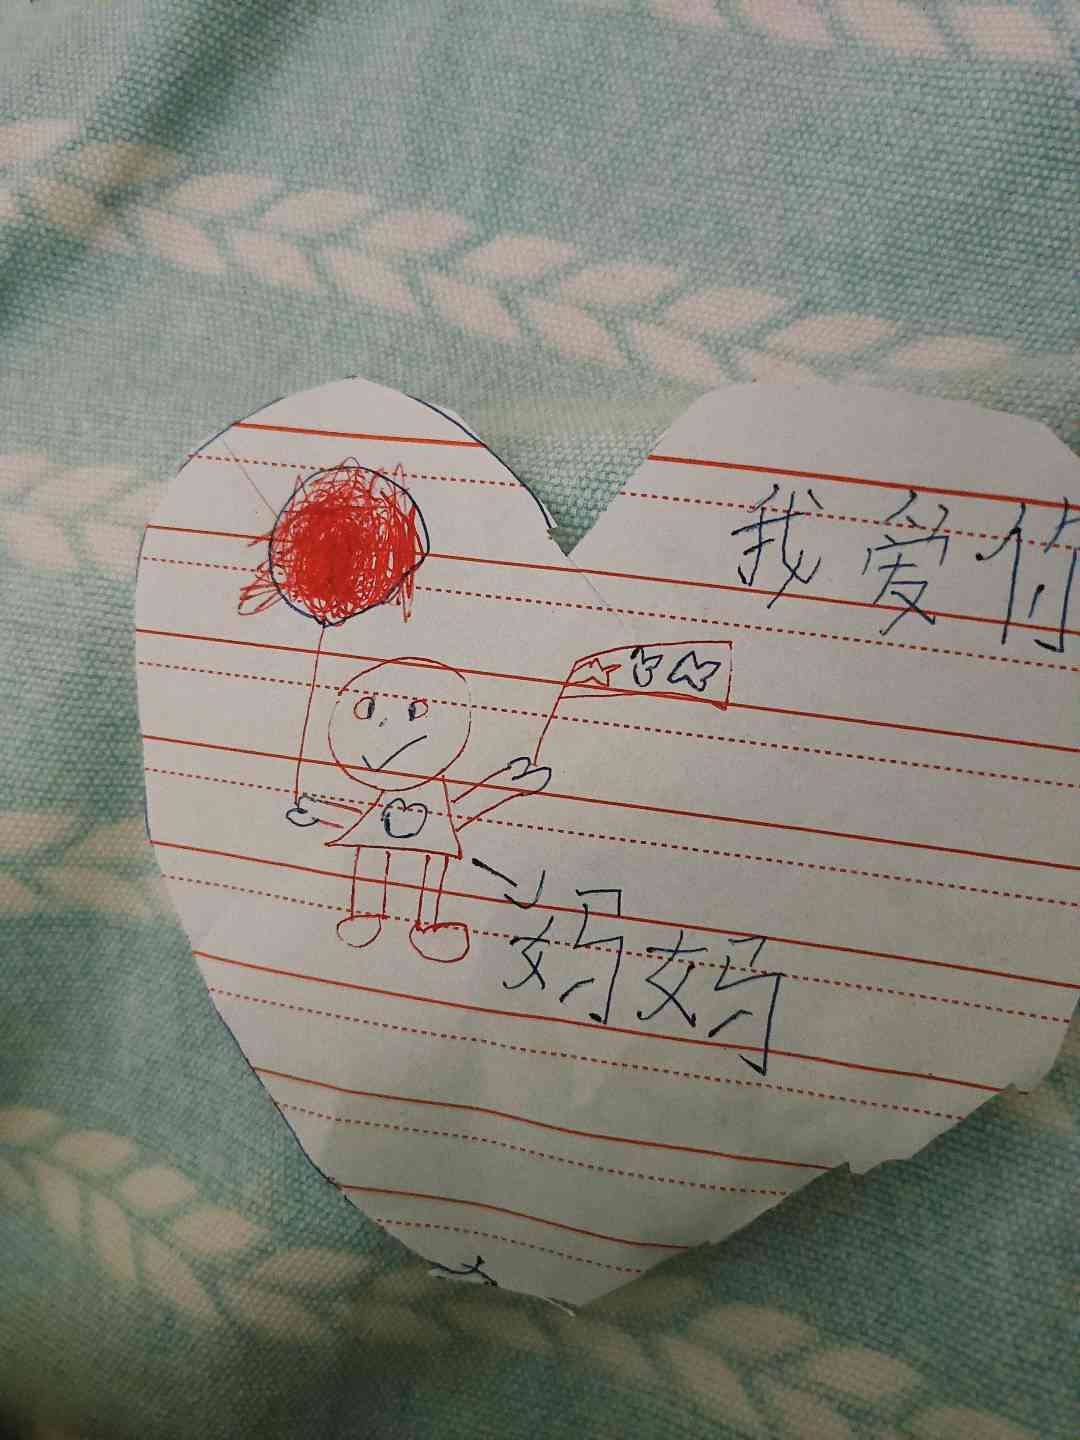 我爱你
妈妈